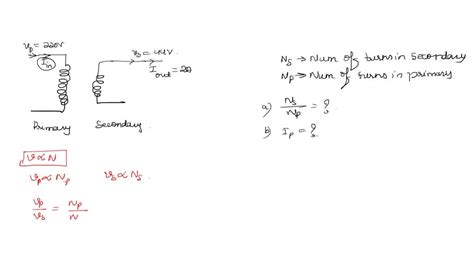 Vp = 220V
Iin
Vs = 44V
Iout = 2A
Primary
Secondary
Ns → Num of turns in Secondary
Np → Num of turns in primary
a) Ns/Np = ?
b) Ip = ?
V ∝ N
Vp ∝ Np    Vs ∝ Ns
Vp/Vs = Np/N